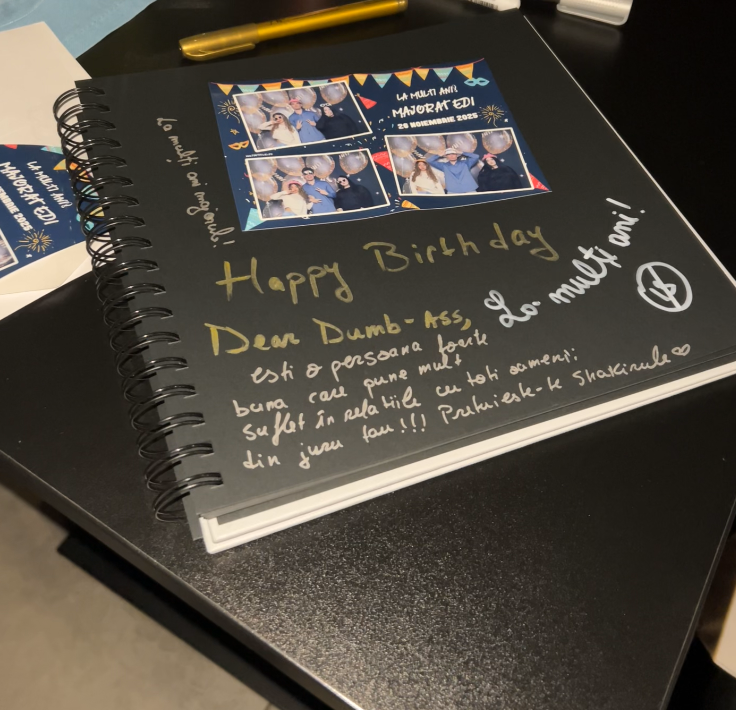 LA MULTI ANI!
MAJORAT EDI
29 NOIEMBRIE 2025
La mulți ani majorule!
Happy Birthday
Dear Dumb-Ass,
La mulți ani!
esti o persoana foarte
buna care pune mult
suflet în relatiile cu toti oamenii
din juru tau!!! Pretuieste-te Shakirule ♡
LA MULTI ANI!
MAJORAT EDI